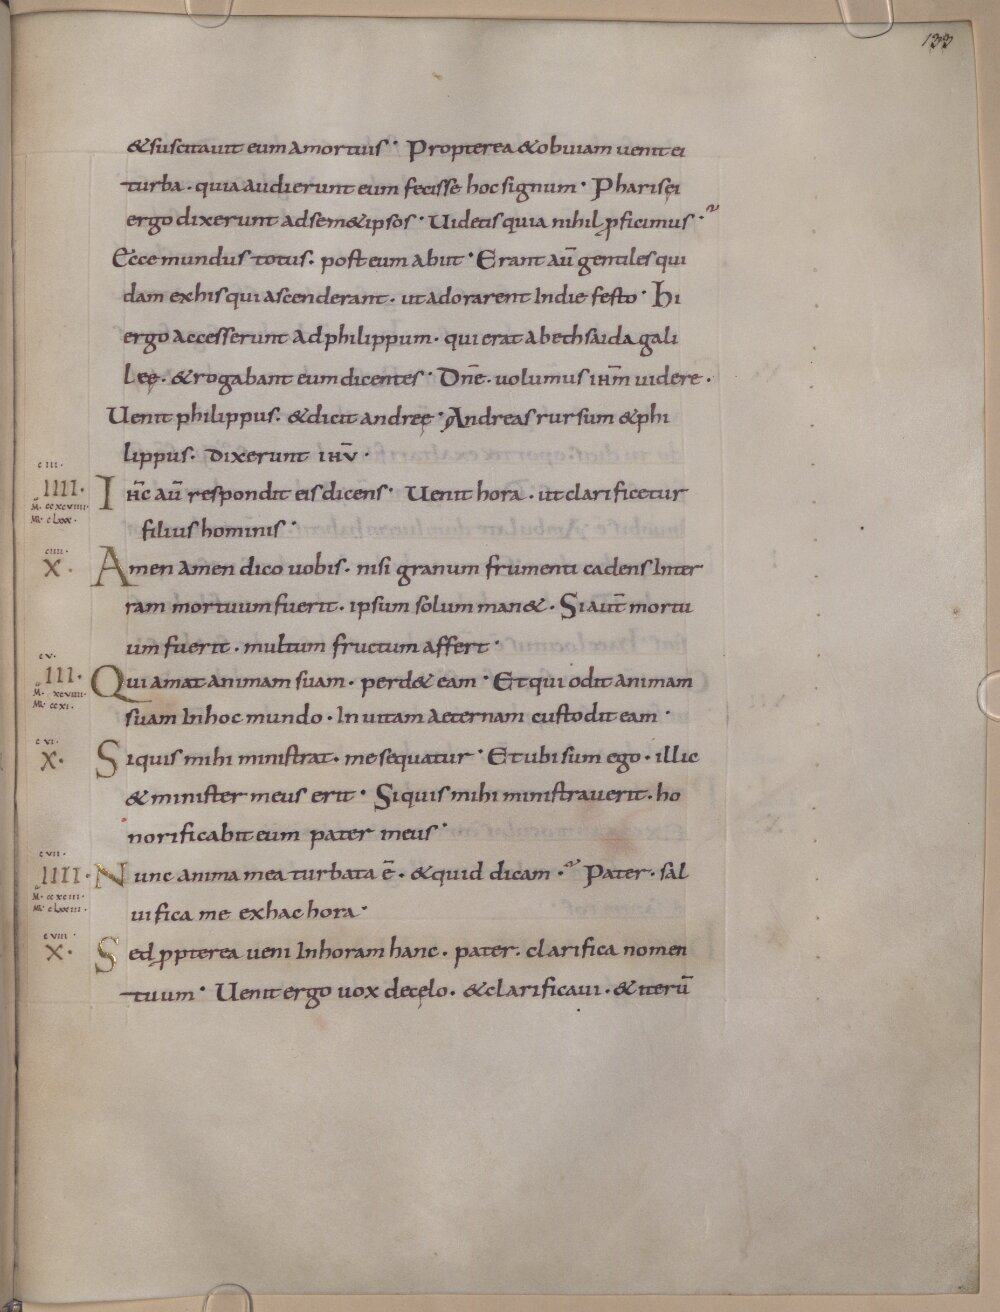 133
&suscitauit eum amortuis · Propterea &obuiam uenit ei
turba · quia audierunt eum fecisse hoc signum · Pharisęi
ergo dixerunt adsem&ipsos · Uidetis quia nihil ꝓficimus ·
Ecce mundus totus · post eum abiit · Erant aū gentiles qui
dam exhis qui ascenderant · ut adorarent Indie festo · Hi
ergo accesserunt adphilippum · qui erat abethsaida gali
Leę · &rogabant eum dicentes · Dn̄e · uolumus ιηm̄ uidere ·
Uenit philippus · &dicit andreę · Andreas rursum &phi
lippus · dixerunt ιηū ·
ciii ·
IIII · Iηc̄ aū respondit eis dicens · Uenit hora · ut clarificetur
M · ccxcviiii ·
Mr · clxxx ·
filius hominis ·
ciiii ·
X · Amen amen dico uobis · nisi granum frumenti cadens Inter
ram mortuum fuerit · ipsum solum man& · Si aut̄ mortu
um fuerit · multum fructum affert ·
cv ·
III · Qui amat animam suam · perd& eam · Et qui odit animam
M · xcviiii ·
Mr · ccxi ·
suam Inhoc mundo · In uitam aeternam custodit eam ·
cvi ·
X · Siquis mihi ministrat · me sequatur · Et ubi sum ego · illic
& minister meus erit · Siquis mihi ministrauerit · ho
norificabit eum pater meus ·
cvii ·
IIII · Nunc anima mea turbata ē · &quid dicam · Pater · sal
M · ccxciiii ·
Mr · clxxiiii ·
uifica me exhac hora ·
cviii ·
X · Sed ꝓpterea ueni Inhoram hanc · pater · clarifica nomen
tuum · Uenit ergo uox decęlo · &clarificaui · &iterū